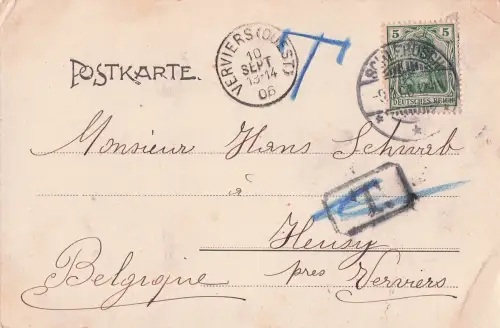 POSTKARTE.
VERVIERS (OUEST)
10
SEPT
13-14
06
T
5 5
DEUTSCHES REICH
Monsieur Hans Schwab
à
T.
Heusy
Belgique près Verviers